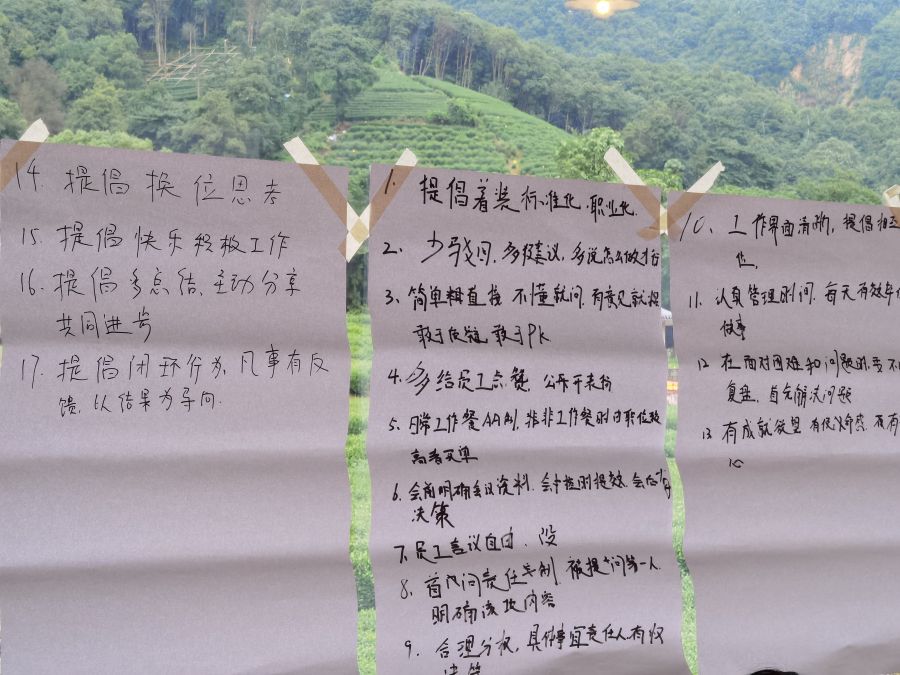 14. 提倡换位思考
15. 提倡快乐积极工作
16. 提倡多总结、主动分享
共同进步
17. 提倡闭环行为, 凡事有反
馈, 以结果为导向.
1. 提倡着装标准化、职业化.
2. 少残问, 多提建议, 多说怎么做才好
3. 简单粗直接 不懂就问, 有意见就提
敢于反馈 敢于PK
4. 多给员工点餐, 公开表扬
5. 日常工作餐AA制, 非工作餐时由职位较
高者买单
6. 会前明确会议资料, 会中控时提效, 会后
决策
7. 员工言议自由、没
8. 首次问责任制, 被提问第一人
明确该项内容
9. 合理分权, 具体事宜责任人有权
决策
10、工作界面清晰, 提倡相互
位,
11. 认真管理时间, 每天有效率
做事
12 在面对困难和问题时要不
复盘, 首先解决问题
13 有成就欲望 有使命感,
心